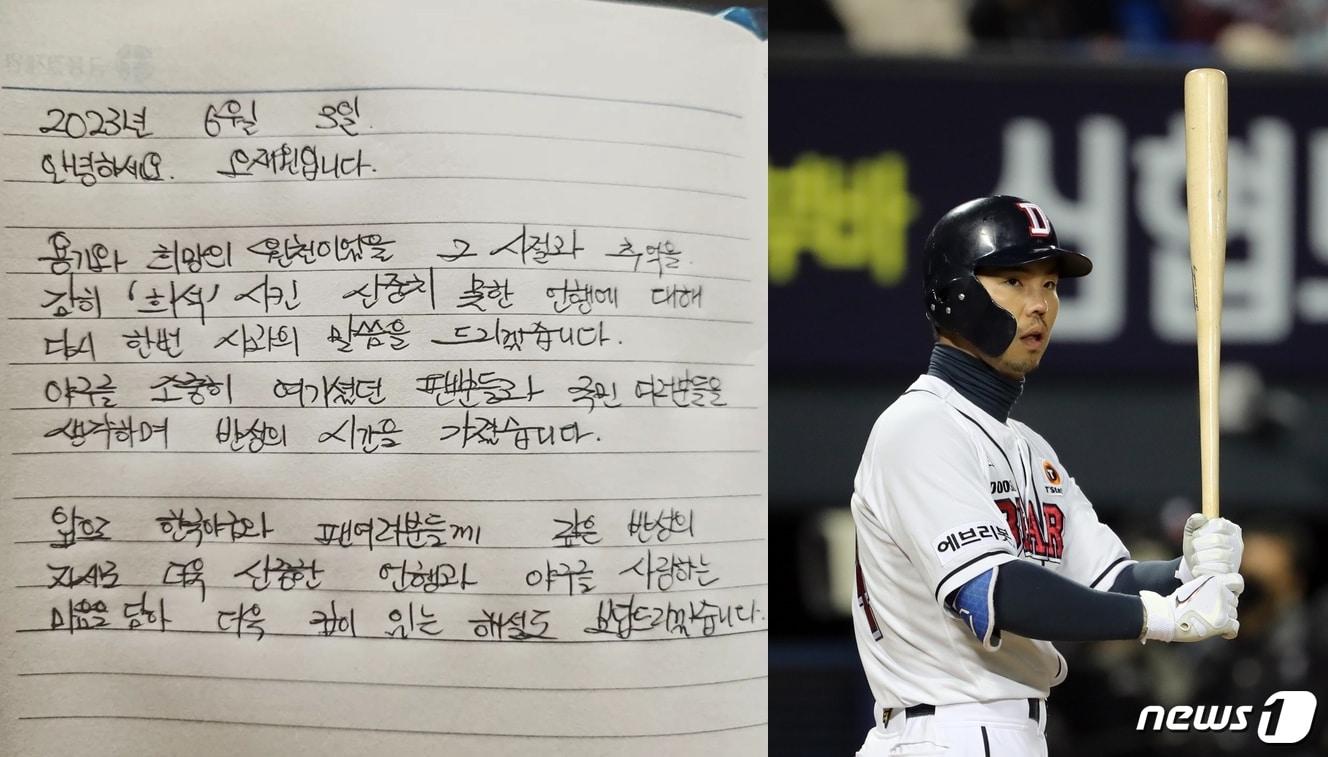 2023년 6월 3일.
안녕하세요. 오재원입니다.
용기와 희망의 원천이었을 그 시절과 추억을
감히 '희석' 시킨 신중치 못한 언행에 대해
다시 한번 사과의 말씀을 드리겠습니다.
야구를 소중히 여기셨던 팬분들과 국민 여러분들을
생각하며 반성의 시간을 가졌습니다.
앞으로 한국야구와 팬여러분들께 깊은 반성의
자세로 더욱 신중한 언행과 야구를 사랑하는
마음을 담아 더욱 깊이 있는 해설로 보답드리겠습니다.
신협
D
DOOS
BEAR
에브리봇
news1